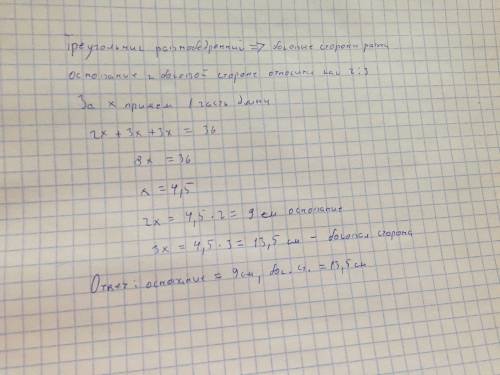 Треугольник равнобедренный => боковые стороны равны
основание и боковой стороне относится как 2:3
За x примем 1 часть длины
2x + 3x + 3x = 36
8x = 36
x = 4,5
2x = 4,5 · 2 = 9 см основание
3x = 4,5 · 3 = 13,5 см - боковая сторона
Ответ: основание = 9 см, бок. ст. = 13,5 см